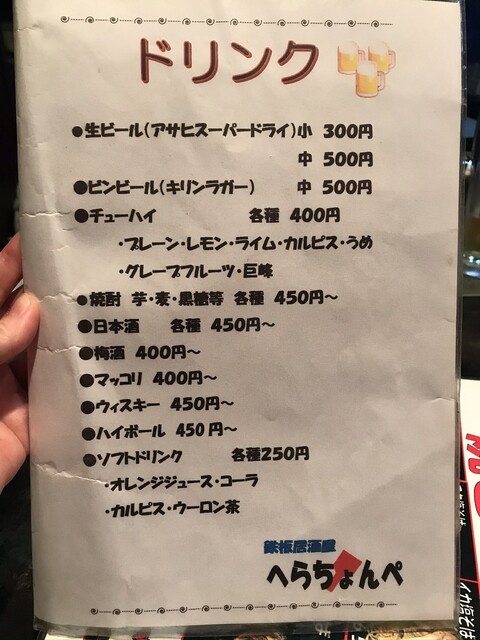 ドリンク
●生ビール(アサヒスーパードライ)小 300円
中 500円
●ビンビール(キリンラガー) 中 500円
●チューハイ 各種 400円
・プレーン・レモン・ライム・カルピス・うめ
・グレープフルーツ・巨峰
●焼酎 芋・麦・黒糖等 各種 450円～
●日本酒 各種 450円～
●梅酒 400円～
●マッコリ 400円～
●ウィスキー 450円～
●ハイボール 450円～
●ソフトドリンク 各種250円
・オレンジジュース・コーラ
・カルピス・ウーロン茶
鉄板居酒屋
へらちょんぺ
イカ焼そば